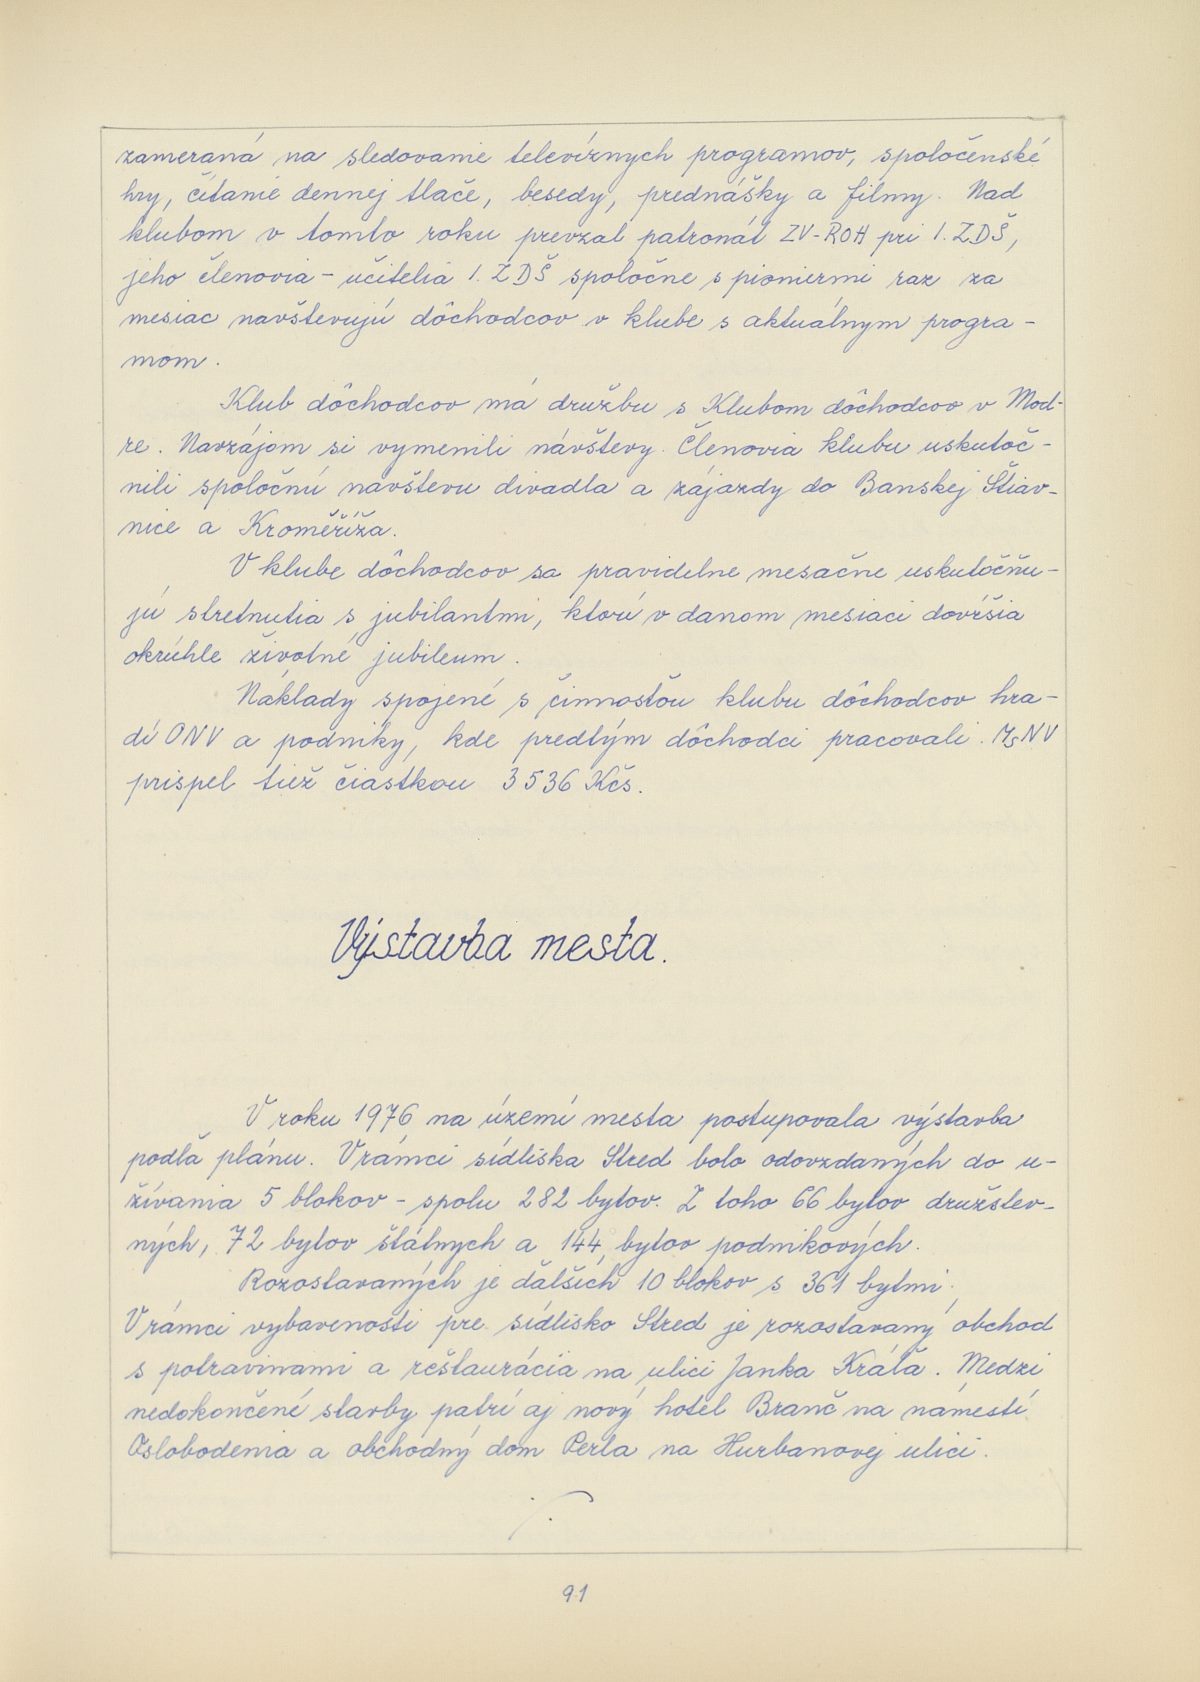 zameraná na sledovanie televíznych programov, spoločenské
hry, čítanie dennej tlače, besedy, prednášky a filmy. Nad
klubom v tomto roku prevzal patronát ZV-ROH pri I. ZDŠ,
jeho členovia - učitelia I. ZDŠ spoločne s pioniermi raz za
mesiac navštevujú dôchodcov v klube s aktuálnym progra-
mom.
Klub dôchodcov má družbu s Klubom dôchodcov v Mod-
re. Navzájom si vymenili návštevy. Členovia klubu uskutoč-
nili spoločnú navštevu divadla a zájazdy do Banskej Štiav-
nice a Kroměříža.
V klube dôchodcov sa pravidelne mesačne uskutočňu-
jú stretnutia s jubilantmi, ktorí v danom mesiaci dovŕšia
okrúhle životné jubileum.
Náklady spojené s činnosťou klubu dôchodcov hra-
dí ONV a podniky, kde predtým dôchodci pracovali. MsNV
prispel tiež čiastkou 3536 Kčs.
Výstavba mesta.
V roku 1976 na území mesta postupovala výstavba
podľa plánu. V rámci sídliska Stred bolo odovzdaných do u-
žívania 5 blokov - spolu 282 bytov. Z toho 66 bytov družstev-
ných, 72 bytov štátnych a 144 bytov podnikových.
Rozostavaných je ďalších 10 blokov s 361 bytmi.
V rámci vybavenosti pre sídlisko Stred je rozostavaný obchod
s potravinami a reštaurácia na ulici Janka Kráľa. Medzi
nedokončené stavby patrí aj nový hotel Branč na námestí
Oslobodenia a obchodný dom Perla na Hurbanovej ulici.
91